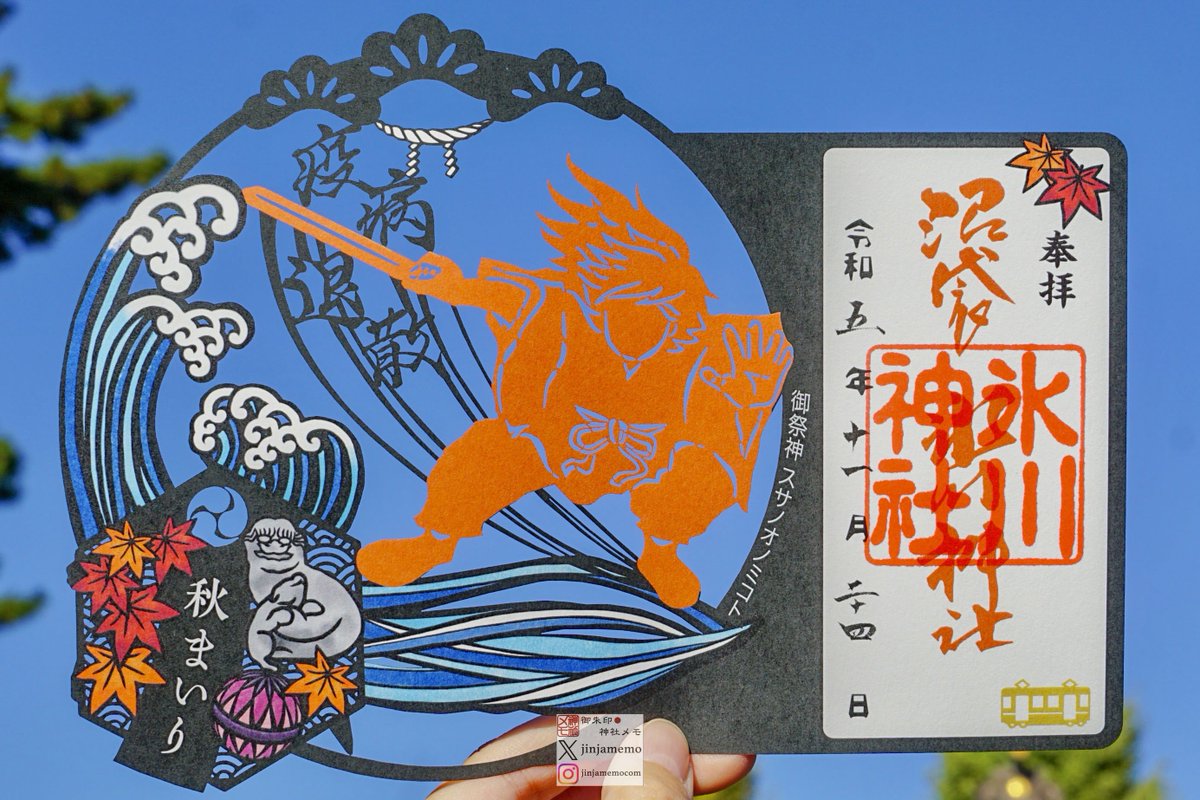 奉拝
沼袋
氷川
神社
氷川神社
令和五年十一月二十四日
疫病退散
御祭神 スサノオノミコト
秋まいり
御朱印●
神社メモ
jinjamemo
jinjamemocom